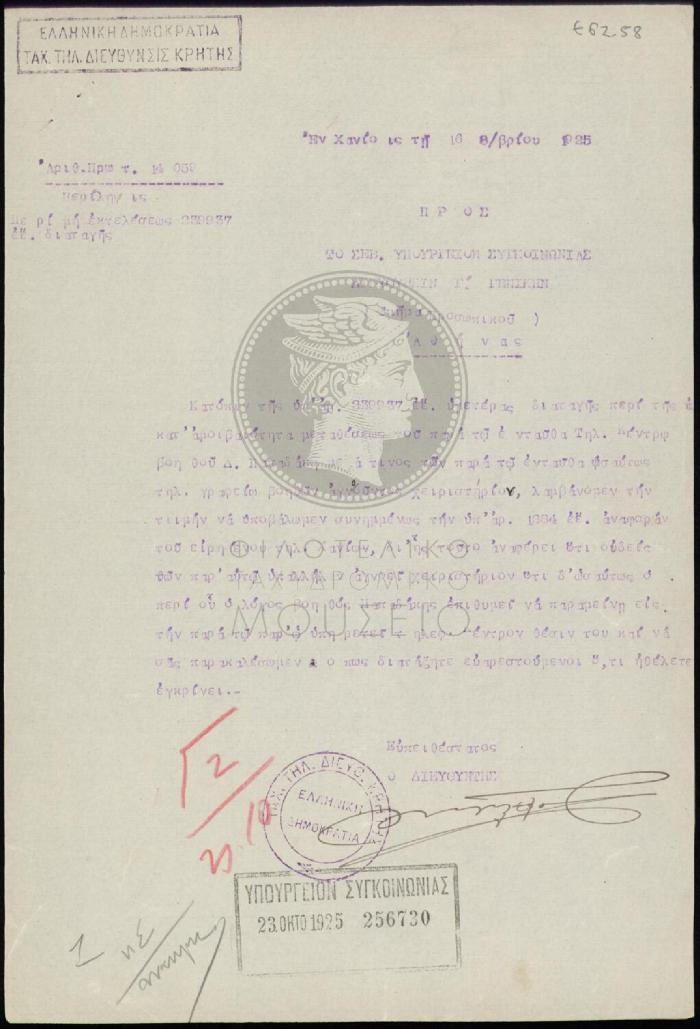 ΕΛΛΗΝΙΚΗ ΔΗΜΟΚΡΑΤΙΑ
ΤΑΧ. ΤΗΛ. ΔΙΕΥΘΥΝΣΙΣ ΚΡΗΤΗΣ
Ε62.58
Ἐν Χανίοις τῇ 16 8/βρίου 1925
Ἀριθ.Πρωτ. 14 059
Περίληψις
Περί μή ἐκτελέσεως 239937
ἐ.ἔ. διαταγῆς
ΠΡΟΣ
ΤΟ ΣΕΒ. ΥΠΟΥΡΓΕΙΟΝ ΣΥΓΚΟΙΝΩΝΙΑΣ
Τμῆμα Προσωπικοῦ )
Ἀθήνας
Κατόπιν τῆς ὑπ'ἀρ. 239937 ἐ.ἔ. ὑμετέρας διαταγῆς περί τῆς
κατ'ἀμοιβαιότητα μεταθέσεως τοῦ παρά τῷ ἐνταῦθα Τηλ. Κέντρῳ
βοηθοῦ Δ. Παπαδάκη μετά τινος τῶν παρά τῷ ἐνταῦθα ὡσαύτως
τηλ. γραφείῳ βοηθῶν χειριστήριον, λαμβάνομεν τήν
τιμήν νά ὑποβάλωμεν συνημμένως τήν ὑπ'ἀρ. 1384 ἐ.ἔ. ἀναφοράν
τοῦ τηλ. Χανίων, δι'ἧς τοῦτο ἀναφέρει ὅτι οὐδείς
τῶν παρ'αὐτῷ ὑπαλλήλων ἀγνοεῖ χειριστήριον ὅτι δ'ὡσαύτως ὁ
περί οὗ ὁ λόγος βοηθός Παπαδάκης ἐπιθυμεῖ νά παραμείνῃ εἰς
τήν παρά τῷ παρ'ᾧ ὑπηρετεῖ τηλεφ. Κέντρον θέσιν του καί νά
σᾶς παρακαλέσωμεν ὅπως διατάξητε εὐαρεστούμενοι ὅ,τι ἠθέλετε
ἐγκρίνει.--
Εὐπειθέστατος
Ο ΔΙΕΥΘΥΝΤΗΣ
ΤΑΧ. ΤΗΛ. ΔΙΕΥΘ. ΚΡΗΤΗΣ
ΕΛΛΗΝΙΚΗ
ΔΗΜΟΚΡΑΤΙΑ
ΥΠΟΥΡΓΕΙΟΝ ΣΥΓΚΟΙΝΩΝΙΑΣ
23.ΟΚΤΟ 1925 256730
ΦΙΛΟΤΕΛΙΚΟ
ΤΑΧΥΔΡΟΜΙΚΟ
ΜΟΥΣΕΙΟ